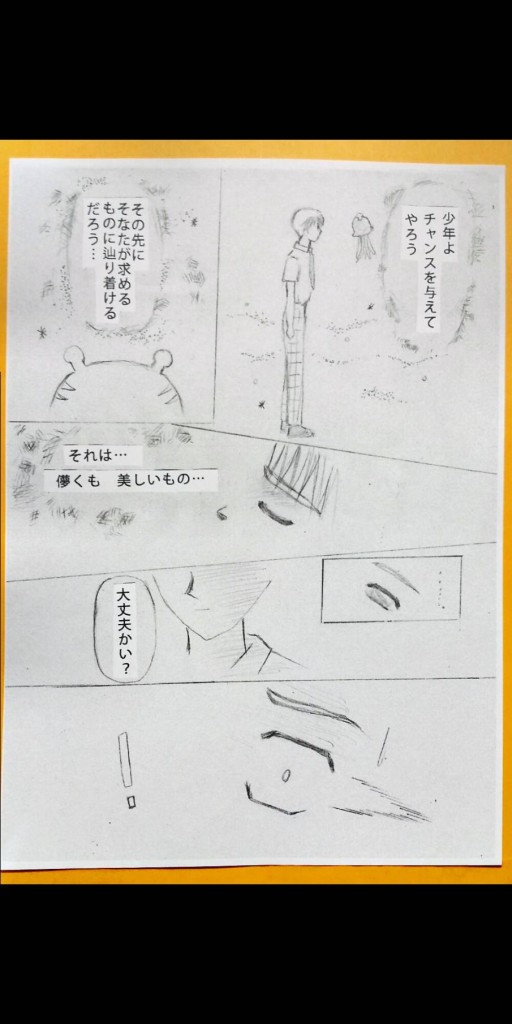 少年よ
チャンスを与えて
やろう
その先に
そなたが求める
ものに辿り着ける
だろう…
それは…
儚くも 美しいもの…
大丈夫かい?
!